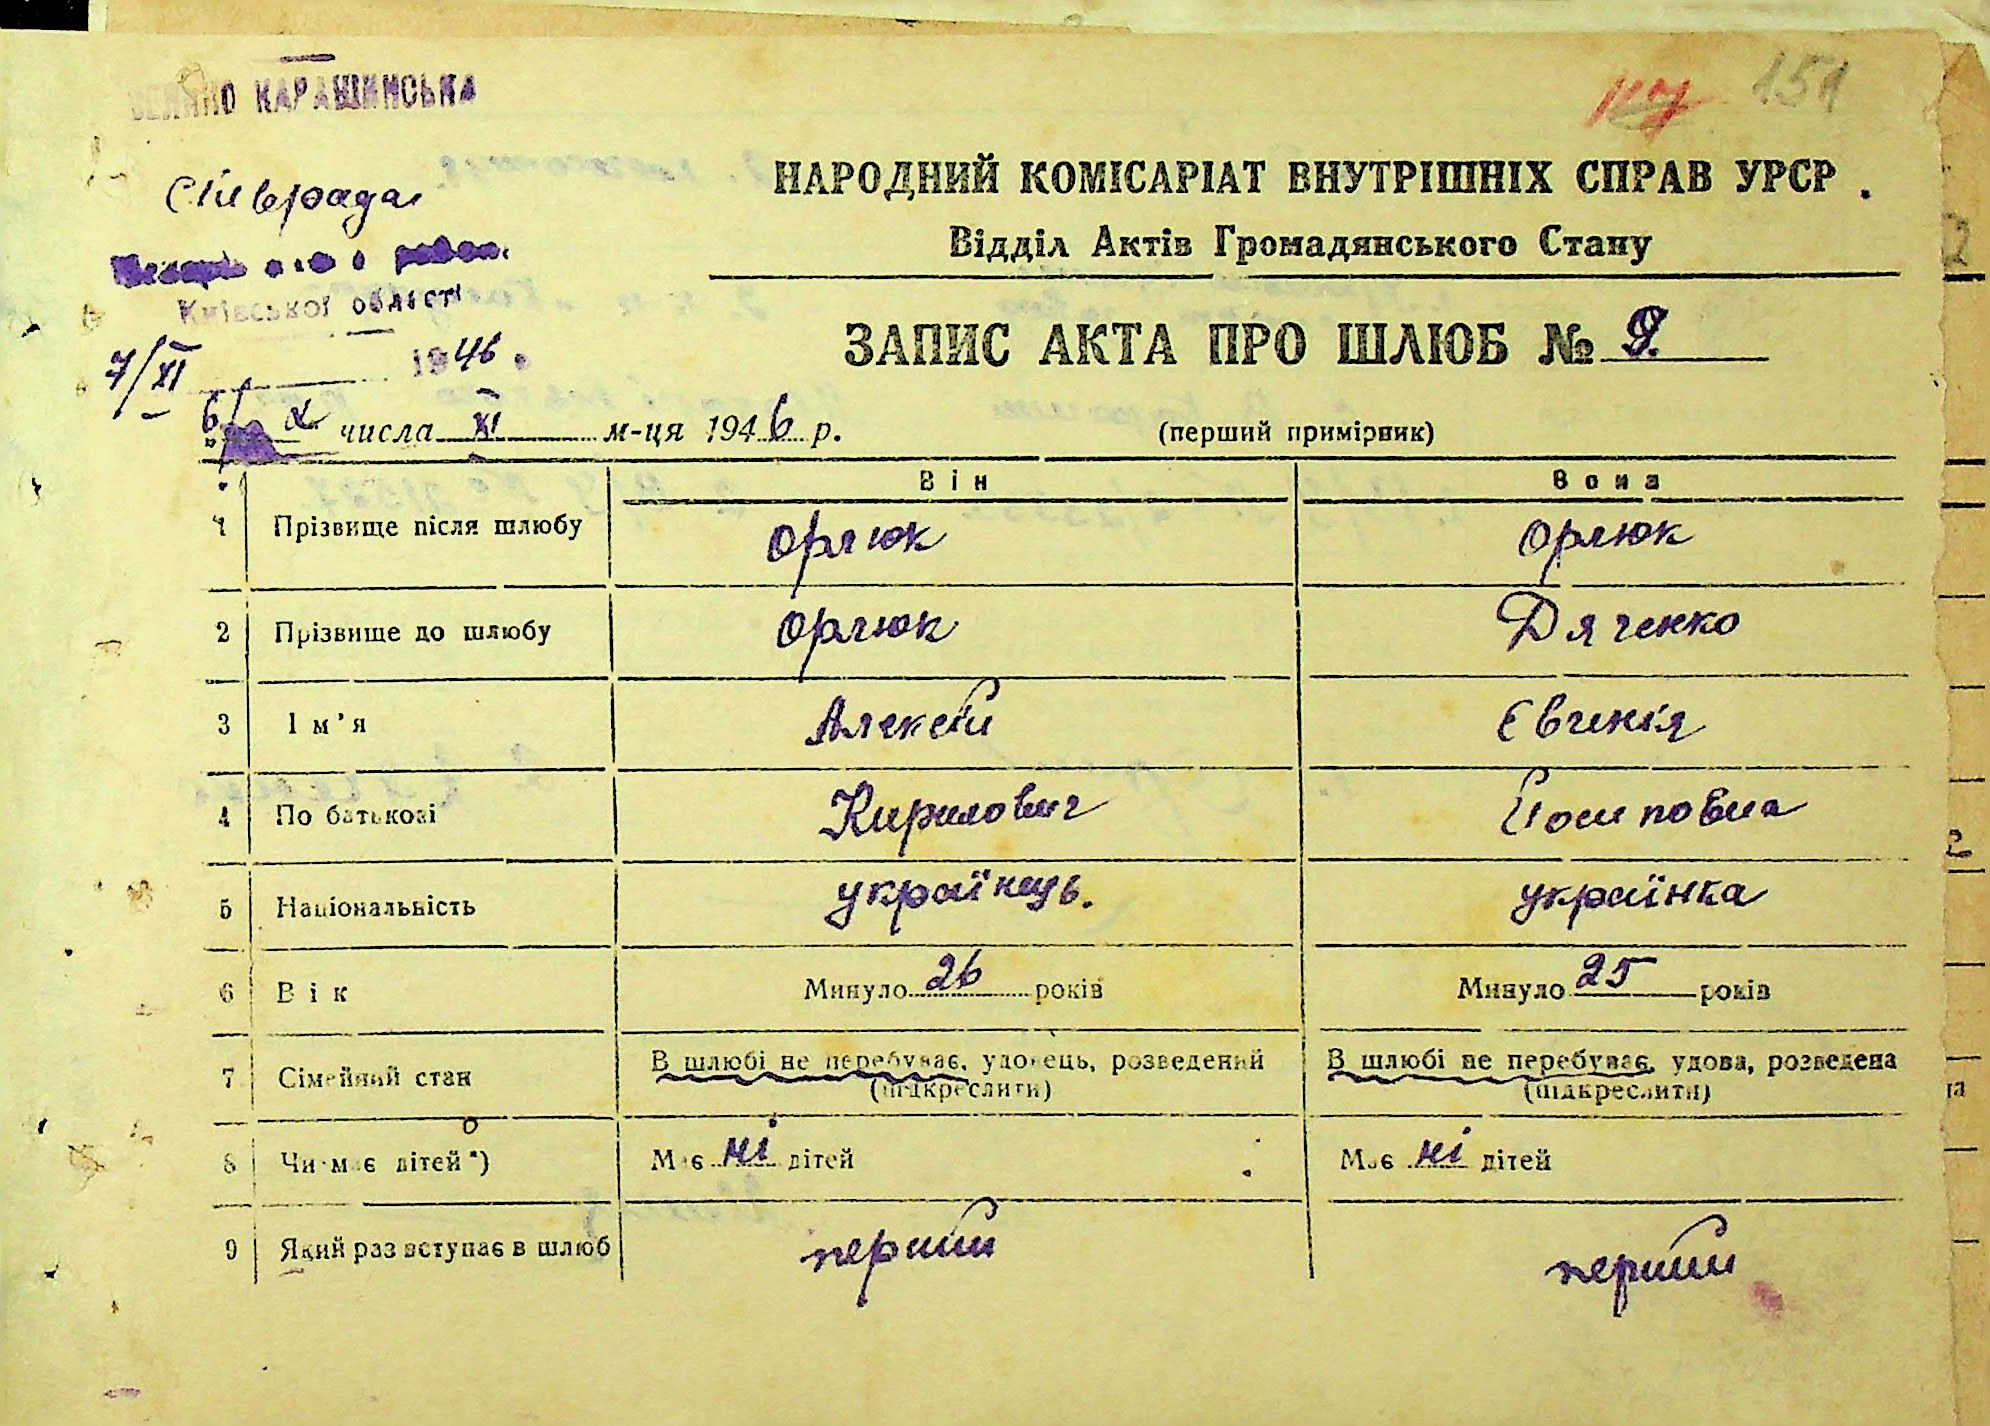 ВЕЛИКО КАРАШИНСЬКА
Сільрада
Київської області
7/XI 1946.
151
НАРОДНИЙ КОМІСАРІАТ ВНУТРІШНІХ СПРАВ УРСР
Відділ Актів Громадянського Стану
ЗАПИС АКТА ПРО ШЛЮБ № 9.
числа XI м-ця 1946 р.
(перший примірник)
Він Вона
1 Прізвище після шлюбу Орлюк Орлюк
2 Прізвище до шлюбу Орлюк Дяченко
3 Ім'я Алексій Євгенія
4 По батькові Кирилович Йосиповна
5 Національність українець. українка
6 Вік Минуло 26 років Минуло 25 років
7 Сімейний стан В шлюбі не перебуває, удовець, розведений В шлюбі не перебуває, удова, розведена
(підкреслити) (підкреслити)
8 Чи має дітей*) Має ні дітей Має ні дітей
9 Який раз вступає в шлюб перший перший